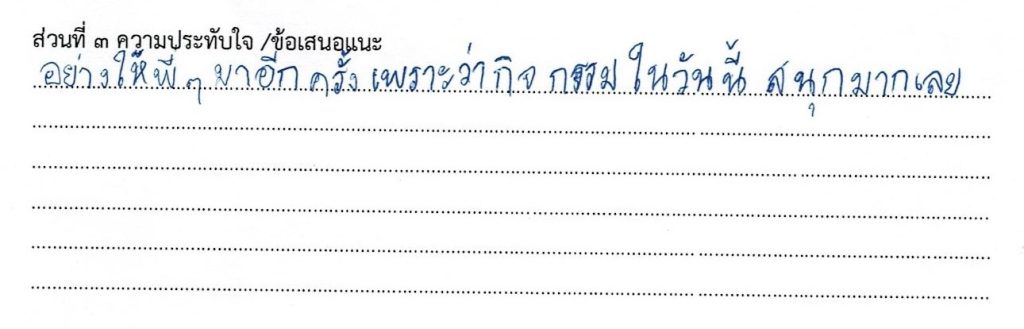 ส่วนที่ ๓ ความประทับใจ /ข้อเสนอแนะ
อย่างให้พี่ๆ มาอีกครั้ง เพราะว่ากิจกรรมในวันนี้ สนุกมากเลย